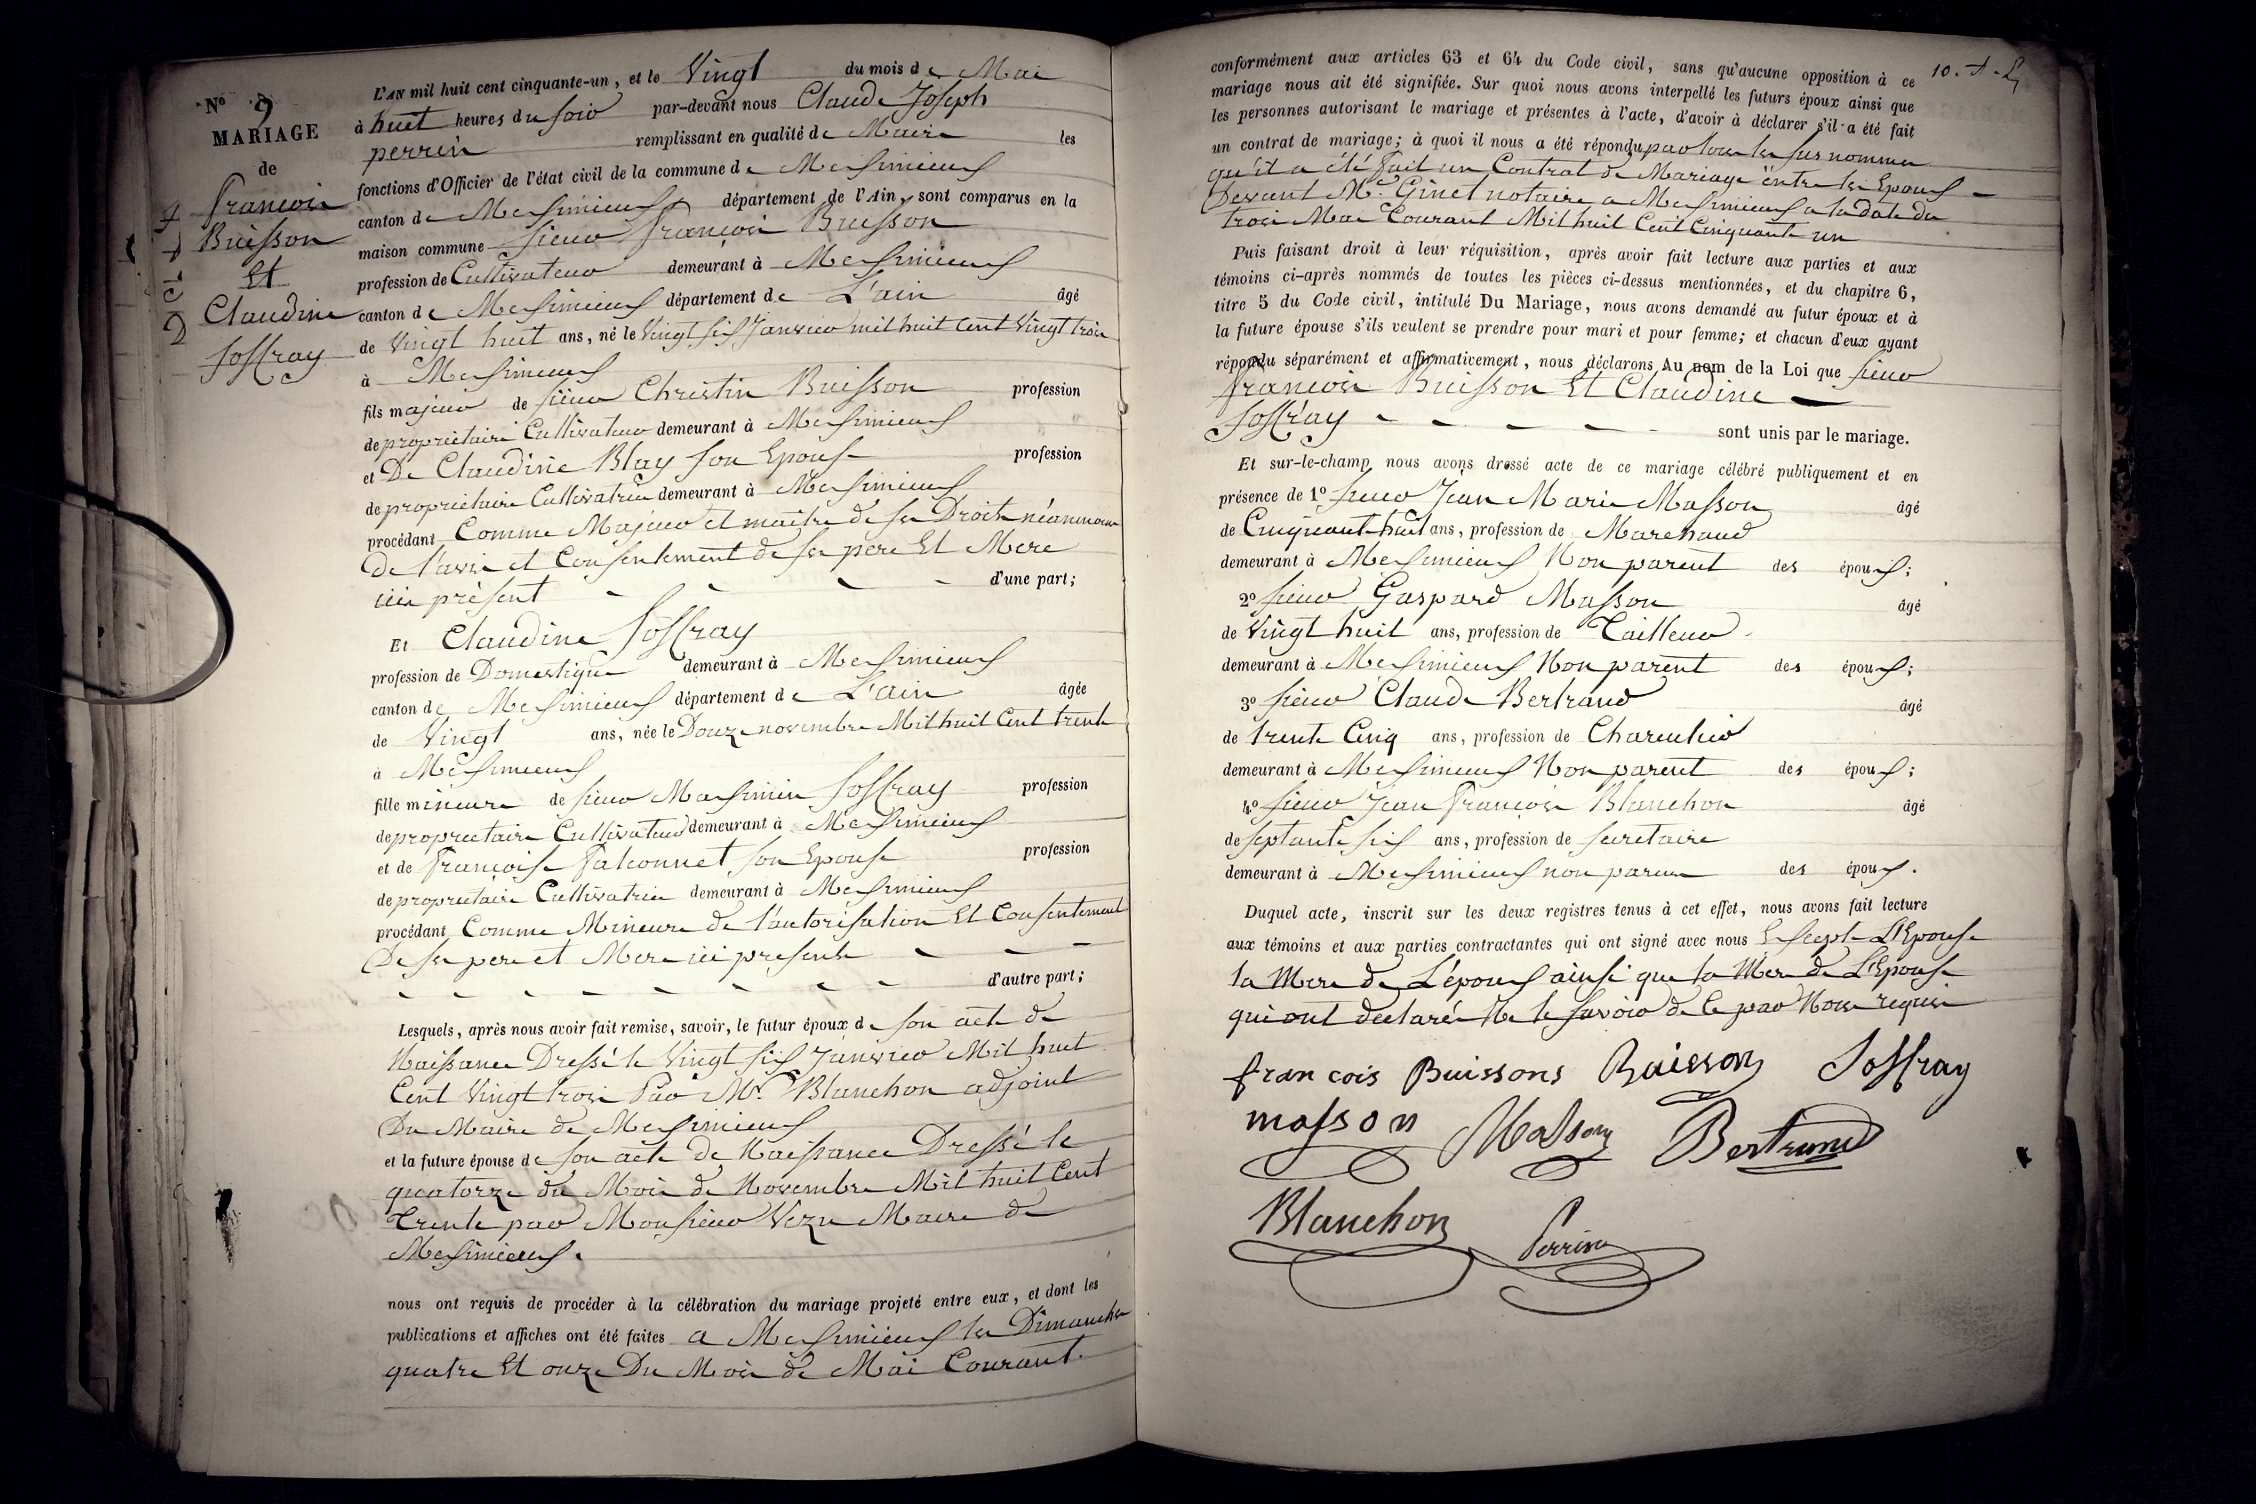 N° 9
MARIAGE
de
françois
Buisson
Et
Claudine
Joffray
L'AN mil huit cent cinquante-un, et le Vingt du mois de Mai
à huit heures du soir par-devant nous Claude Joseph
perrin remplissant en qualité de Maire les
fonctions d'Officier de l'état civil de la commune de Meximieux
canton de Meximieux département de l'Ain, sont comparus en la
maison commune sieur françois Buisson
profession de Cultivateur demeurant à Meximieux
canton de Meximieux département de L'ain âgé
de Vingt huit ans, né le Vingt six Janvier mil huit Cent Vingt trois
à Meximieux
fils majeur de sieur Christin Buisson profession
de propriétaire Cultivateur demeurant à Meximieux
et De Claudine Blay son Epouse profession
de propriétaire Cultivatrice demeurant à Meximieux
procédant Comme Majeur et maître de ses Droits néanmoins
De l'avis et Consentement de ses pere Et Mere
ici présent d'une part;
Et Claudine Joffray
profession de Domestique demeurant à Meximieux
canton de Meximieux département de L'ain âgée
de Vingt ans, née le Douze novembre Mil huit Cent trente
à Meximieux
fille mineure de sieur Maximin Joffray profession
de proprietaire Cultivateur demeurant à Meximieux
et de françoise falconnet son Epouse profession
de propriétaire Cultivatrice demeurant à Meximieux
procédant Comme Mineure de l'autorisation Et Consentement
De ses pere et Mere ici presents
d'autre part;
Lesquels, après nous avoir fait remise, savoir, le futur époux de son acte de
Naissance Dressé le Vingt six Janvier Mil huit
Cent Vingt trois Par Mr. Blanchon adjoint
Du Maire de Meximieux
et la future épouse de son acte de Naissance Dressé le
quatorze du Mois de Novembre Mil huit Cent
Trente par Monsieur Vezu Maire de
Meximieux.
nous ont requis de procéder à la célébration du mariage projeté entre eux, et dont les
publications et affiches ont été faites a Meximieux les Dimanches
quatre Et onze Du Mois de Mai Courant.
conformément aux articles 63 et 64 du Code civil, sans qu'aucune opposition à ce
mariage nous ait été signifiée. Sur quoi nous avons interpellé les futurs époux ainsi que
les personnes autorisant le mariage et présentes à l'acte, d'avoir à déclarer s'il a été fait
un contrat de mariage; à quoi il nous a été répondu par tous les sus nommes
qu'il a été fait un Contrat de Mariage entre les Epoux
Devant Me. Ginet notaire a Meximieux a la date du
trois Mai Courant Mil huit Cent Cinquante un
Puis faisant droit à leur réquisition, après avoir fait lecture aux parties et aux
témoins ci-après nommés de toutes les pièces ci-dessus mentionnées, et du chapitre 6,
titre 5 du Code civil, intitulé Du Mariage, nous avons demandé au futur époux et à
la future épouse s'ils veulent se prendre pour mari et pour femme; et chacun d'eux ayant
répondu séparément et affirmativement, nous déclarons Au nom de la Loi que sieur
françois Buisson Et Claudine
Joffray sont unis par le mariage.
Et sur-le-champ nous avons dressé acte de ce mariage célébré publiquement et en
présence de 1° sieur Jean Marie Masson âgé
de Cinquante huit ans, profession de Marchand
demeurant à Meximieux Non parent des époux;
2° sieur Gaspard Masson âgé
de Vingt huit ans, profession de Tailleur
demeurant à Meximieux Non parent des époux;
3° sieur Claude Bertrand âgé
de trente Cinq ans, profession de Charcutier
demeurant à Meximieux Non parent des époux;
4° sieur Jean françois Blanchon âgé
de septante six ans, profession de secretaire
demeurant à Meximieux non parent des époux.
Duquel acte, inscrit sur les deux registres tenus à cet effet, nous avons fait lecture
aux témoins et aux parties contractantes qui ont signé avec nous Excepté L'Epouse
la Mere de L'époux ainsi que la Mere de L'Epouse
qui ont declaré Ne le savoir de Ce par Nous requis
françois Buissons Buisson Joffray
masson Masson Bertrand
Blanchon Perrin